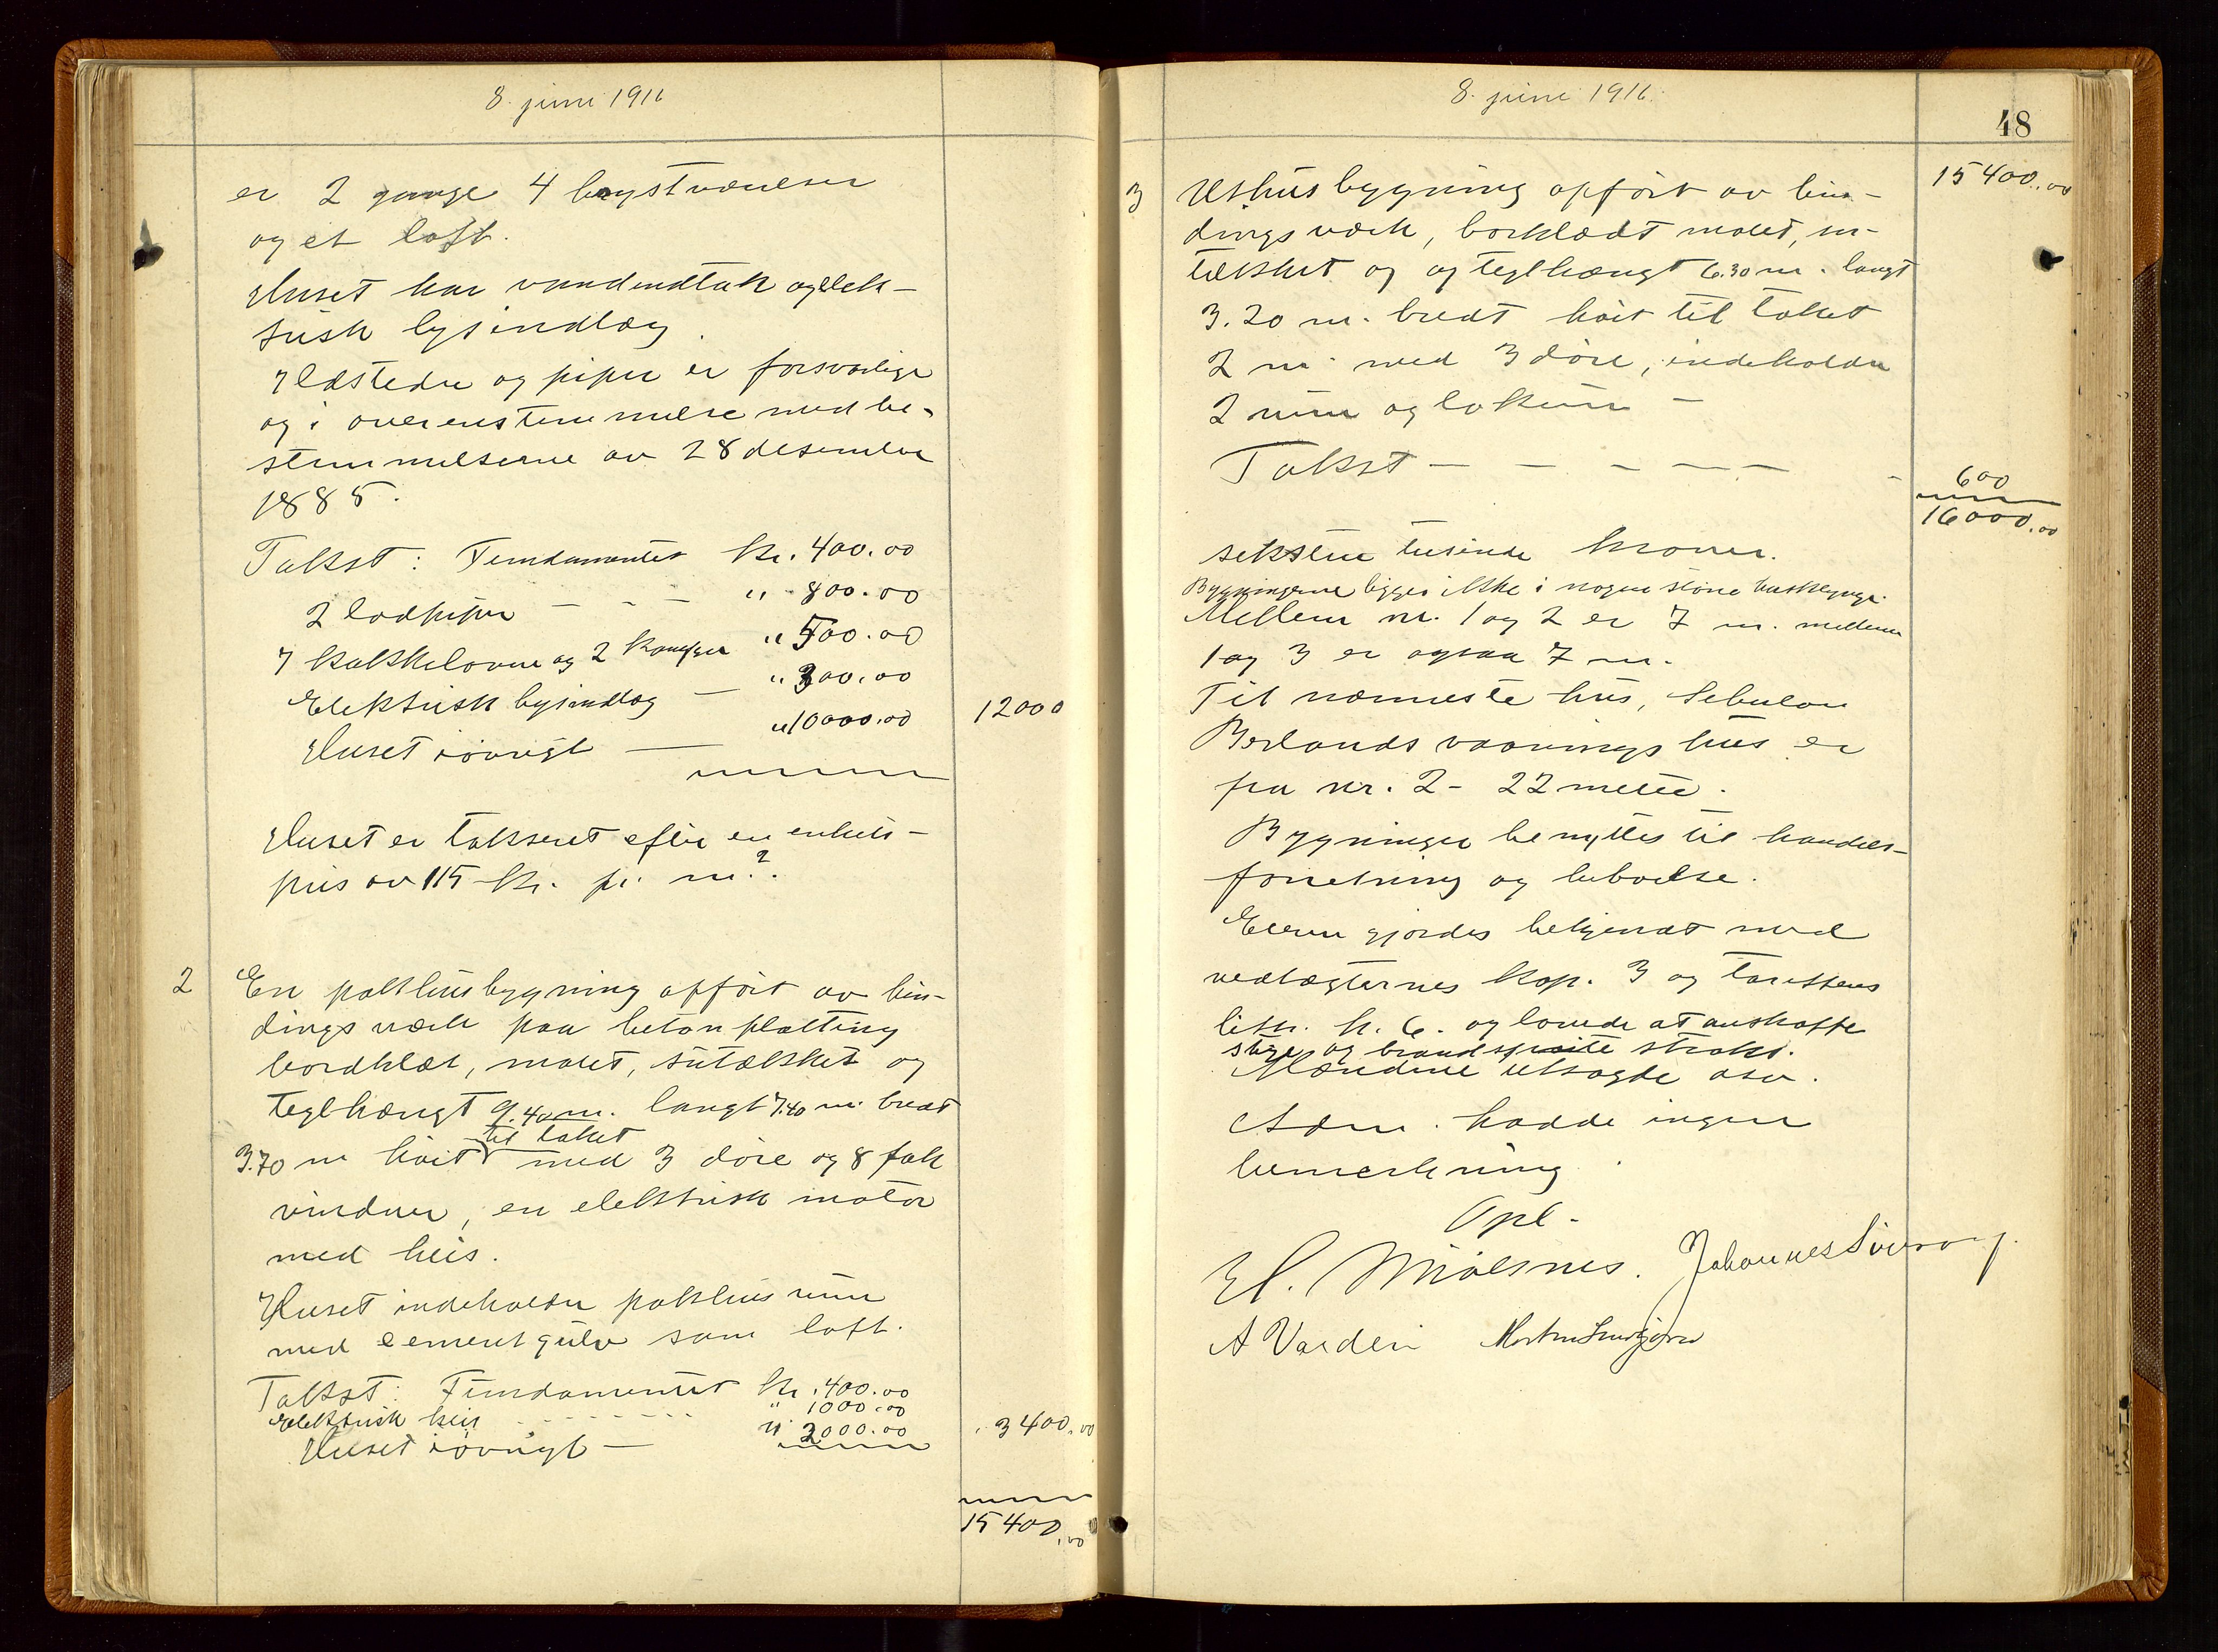 8. juni 1916
er 2 gange 4 kvistværelser
og et loft.
Huset har vandindtak og elek-
trisk lysindlæg.
Ildsteder og piper er forsvarlige
og i overenstemmelse med be-
stemmelserne av 28 desember
1885.
Takst: Fundamentet kr. 400.00
2 lodpiper — — — " 800.00
7 kakkelovne og 2 komfyrer " 500.00
Elektrisk lysindlæg — " 300.00
Huset iøvrigt — " 10000.00 12000
Huset er takseret efter en enhets-
pris av 115 kr. pr. m².
2 En pakhusbygning opført av bin-
dingsværk paa betonplatting
bordklæt, malet, sutaksket og
teglhængt 9.40 m. langt 7.40 m. bredt
til taket
3.70 m høit med 3 døre og 8 fak
vinduer, en elektrisk motor
med heis.
Huset indeholder pakhusrum
med cementgulv samt loft.
Takst: Fundamentet kr. 400.00
Elektrisk heis " 1000.00
Huset iøvrigt — " 2000.00 3400.00
15400.00
8. juni 1916.
48
15400.00
3 Uthusbygning opført av bin-
dingsværk, bordklædt malet, su-
takket og og teglhængt 6.30 m. langt
3.20 m. bredt høit til taket
2 m. med 3 døre, indeholder
2 rum og lokum —
Takst — — — — — 600
16000.00
seksten tusinde kroner.
Bygningerne ligger ikke i nogen større husklynge.
Mellem nr. 1 og 2 er 7 m. mellem
1 og 3 er ogsaa 7 m.
Til nærmeste hus, Sebulon
Berlands vaaningshus er
fra nr. 2 - 22 meter.
Bygninger benyttes til handels-
forretning og beboelse.
Eieren gjordes bekjendt med
vedtægternes kap. 3 og tariffens
litr. k. 6. og lovede at anskaffe
stige og brandsprøite straks.
Mændene utsagde osv.
Adm. hadde ingen
bemerkning.
Opl.
H. Mjølsnes. Johannes
A Varden